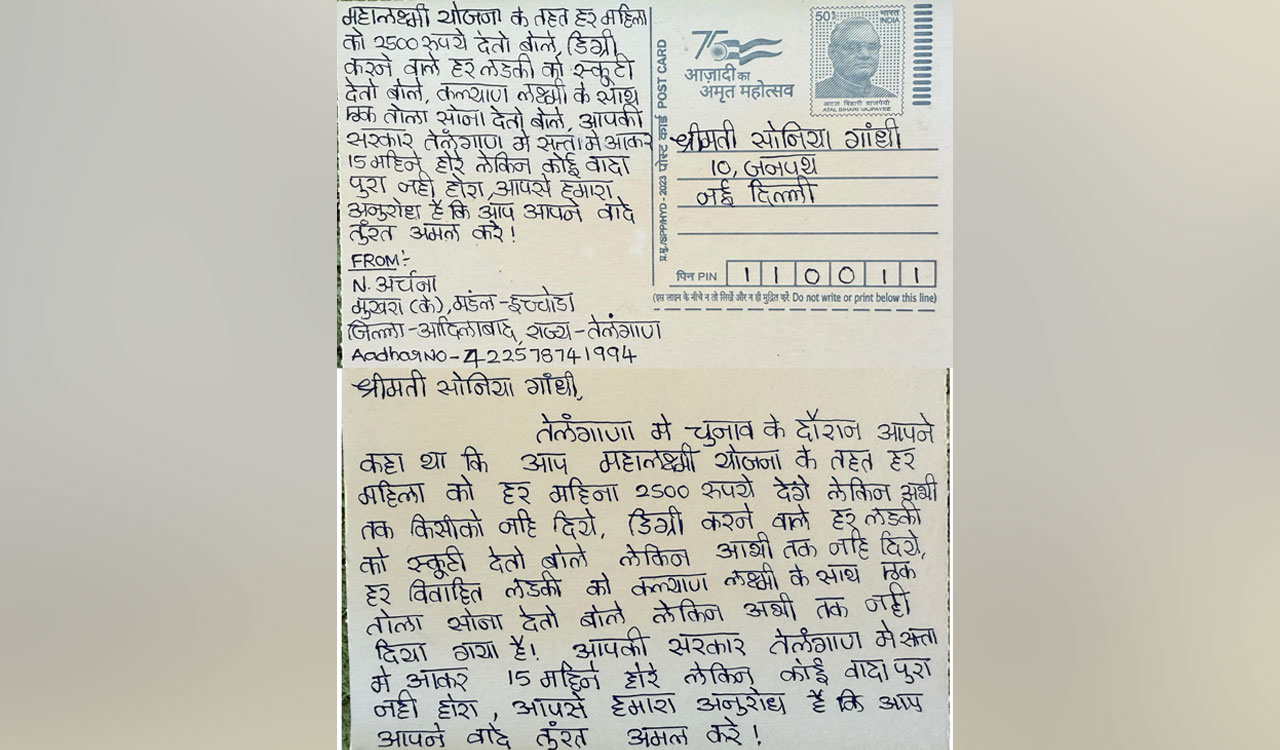 महालक्ष्मी योजना के तहत हर महिला
को 2500 रुपये देतो बोले, डिग्री
करने वाले हर लडकी को स्कूटी
देतो बोले, कल्याण लक्ष्मी के साथ
एक तोला सोना देतो बोले, आपकी
सरकार तेलंगाण मे सत्ता मे आकर
15 महिने होरे लेकिन कोई वादा
पुरा नही होरा, आपसे हमारा
अनुरोध है कि आप आपने वादे
तुंरत अमल करे!
FROM:-
N. अर्चना
मुखरा (के), मंडल-इच्चोडा
जिल्ला-आदिलाबाद, राज्य-तेलंगाण
Aadhar NO-422578741994
प्र.मु./SPP/HYD - 2023 पोस्ट कार्ड POST CARD
75
आज़ादी का
अमृत महोत्सव
50
भारत
INDIA
अटल बिहारी वाजपेयी
ATAL BIHARI VAJPAYEE
श्रीमती सोनिया गांधी
10, जनपथ
नई दिल्ली
पिन PIN 110011
(इस लाइन के नीचे न तो लिखें और न ही मुद्रित करें Do not write or print below this line)
श्रीमती सोनिया गांधी,
तेलंगाणा मे चुनाव के दौरान आपने
कहा था कि आप महालक्ष्मी योजना के तहत हर
महिला को हर महिना 2500 रुपये देंगे लेकिन अभी
तक किसीको नहि दिये, डिग्री करने वाले हर लडकी
को स्कूटी देतो बोले लेकिन आभी तक नहि दिये,
हर विवाहित लडकी को कल्याण लक्ष्मी के साथ एक
तोला सोना देतो बोले लेकिन अभी तक नही
दिया गया है! आपकी सरकार तेलंगाण मे सत्ता
मे आकर 15 महिने होरे लेकिन कोई वादा पुरा
नही होरा, आपसे हमारा अनुरोध है कि आप
आपने वादे तुंरत अमल करे!